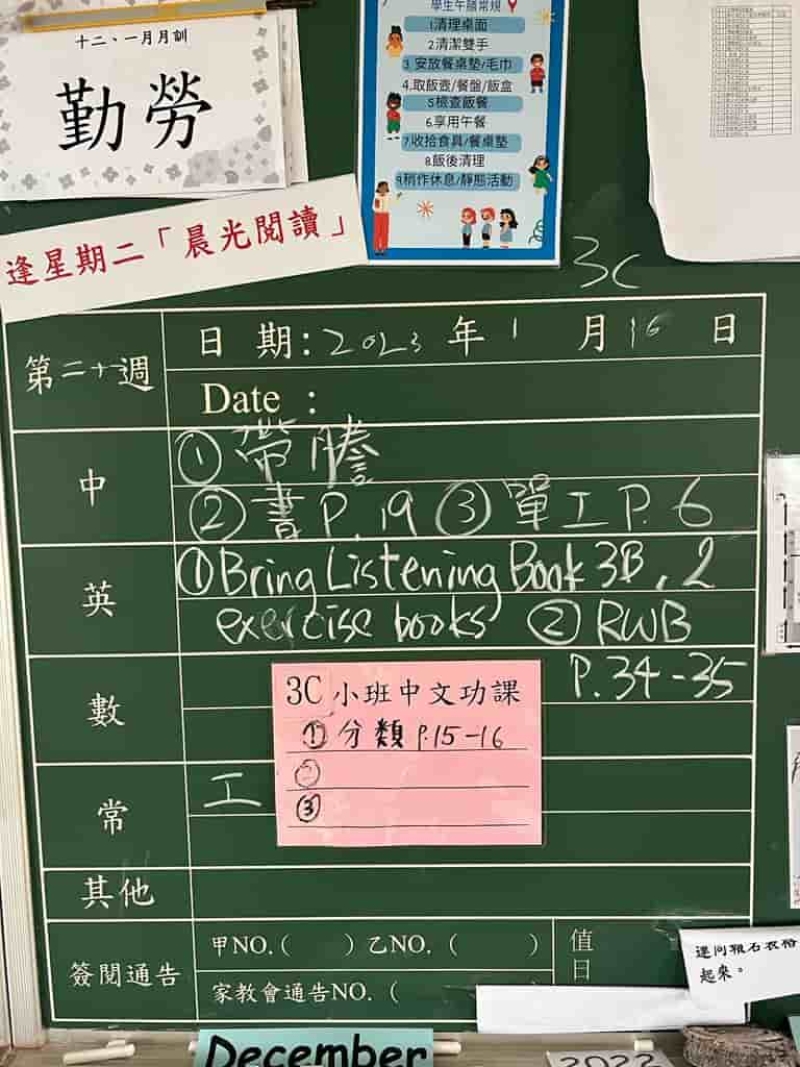 十二、一月月訓
勤勞
學生午膳常規
1清理桌面
2.清潔雙手
3.安放餐桌墊/毛巾
4.取飯壺/餐盤/飯盒
5檢查飯餐
6.享用午餐
7.收拾食具/餐桌墊
8.飯後清理
9.稍作休息/靜態活動
逢星期二「晨光閱讀」
3C
第二十週
日期:2023年1月16日
Date :
中
①帶謄
②書P.19 ③單工P.6
英
①Bring Listening Book 3B, 2
exercise books ②RWB
P.34-35
數
3C小班中文功課
①分類 P.15-16
②
③
常
工
其他
簽閱通告
甲NO.( )乙NO. ( )
值日
家教會通告NO. (
起來。
December
2022